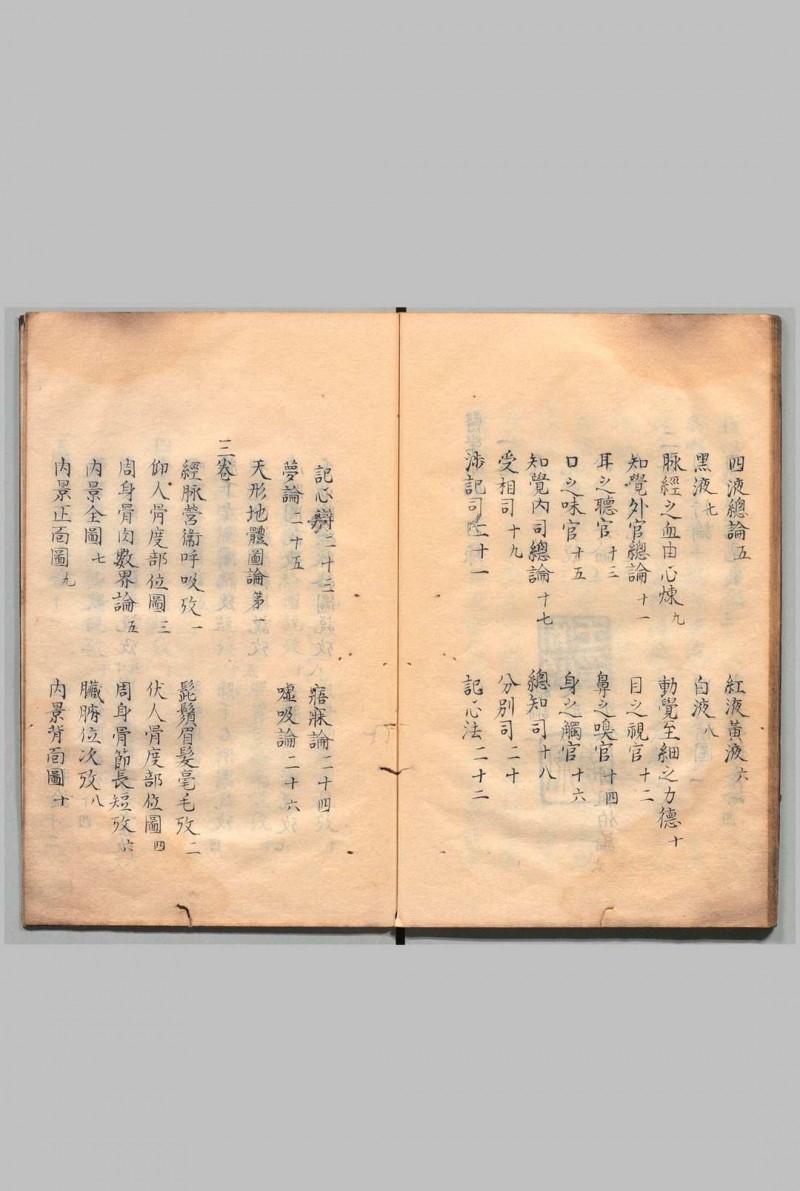 四液總論五 紅液黃液六
黑液七 白液八
脉經之血由心煉九 動覺至細之力德十
知覺外官總論十一 目之視官十二
耳之聽官十三 鼻之嗅官十四
口之味官十五 身之觸官十六
知覺內司總論十七 總知司十八
受相司十九 分別司二十
涉記司二十一 記心法二十二
記心辯二十三 寤寐論二十四
夢論二十五 噓吸論二十六
天形地體圖論第一
三卷
經脉營衞呼吸攷一 髭鬚眉髮毫毛攷二
仰人骨度部位圖三 伏人骨度部位圖四
周身骨肉數界論五 周身骨節長短攷六
內景全圖七 臟腑位次攷八
內景正面圖九 內景背面圖十